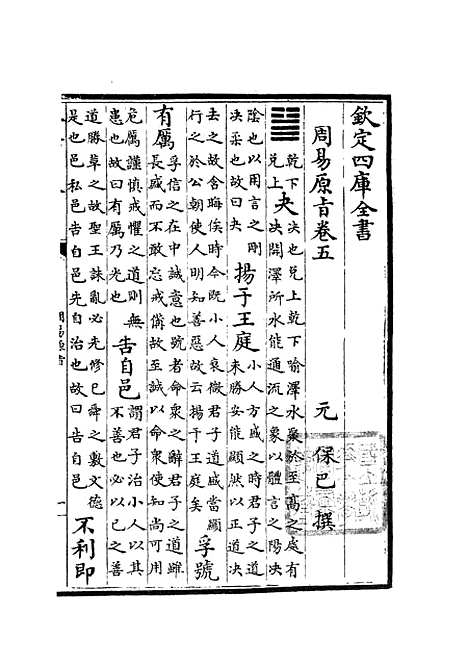 欽定四庫全書
周易原旨卷五
元 保巴 撰
䷪
乾下
兌上
夬
決也兌上乾下喻澤水聚於至高之處有
決開澤所水能通流之象以體言之陽決
陰也以用言之剛
決柔也故曰夬
揚于王庭
小人方盛之時君子之道
未勝安能顯然以正道決
去之故含晦俟時今既小人衰微君子道盛當顯
行之於公朝使人明知善惡故云揚于王庭矣
孚號
有厲
孚信之在中誠意也號者命衆之辭君子之道雖
長盛而不敢忘戒備故至誠以命衆使知尚可用
危厲謹慎戒懼之道則無
患也故曰有厲乃光也
告自邑
謂君子治小人以其
不善也必以己之善
道勝革之故聖王誅亂必先修己舜之敷文德
是也邑私邑告自邑先自治也故曰告自邑
不利即
周易原旨
一